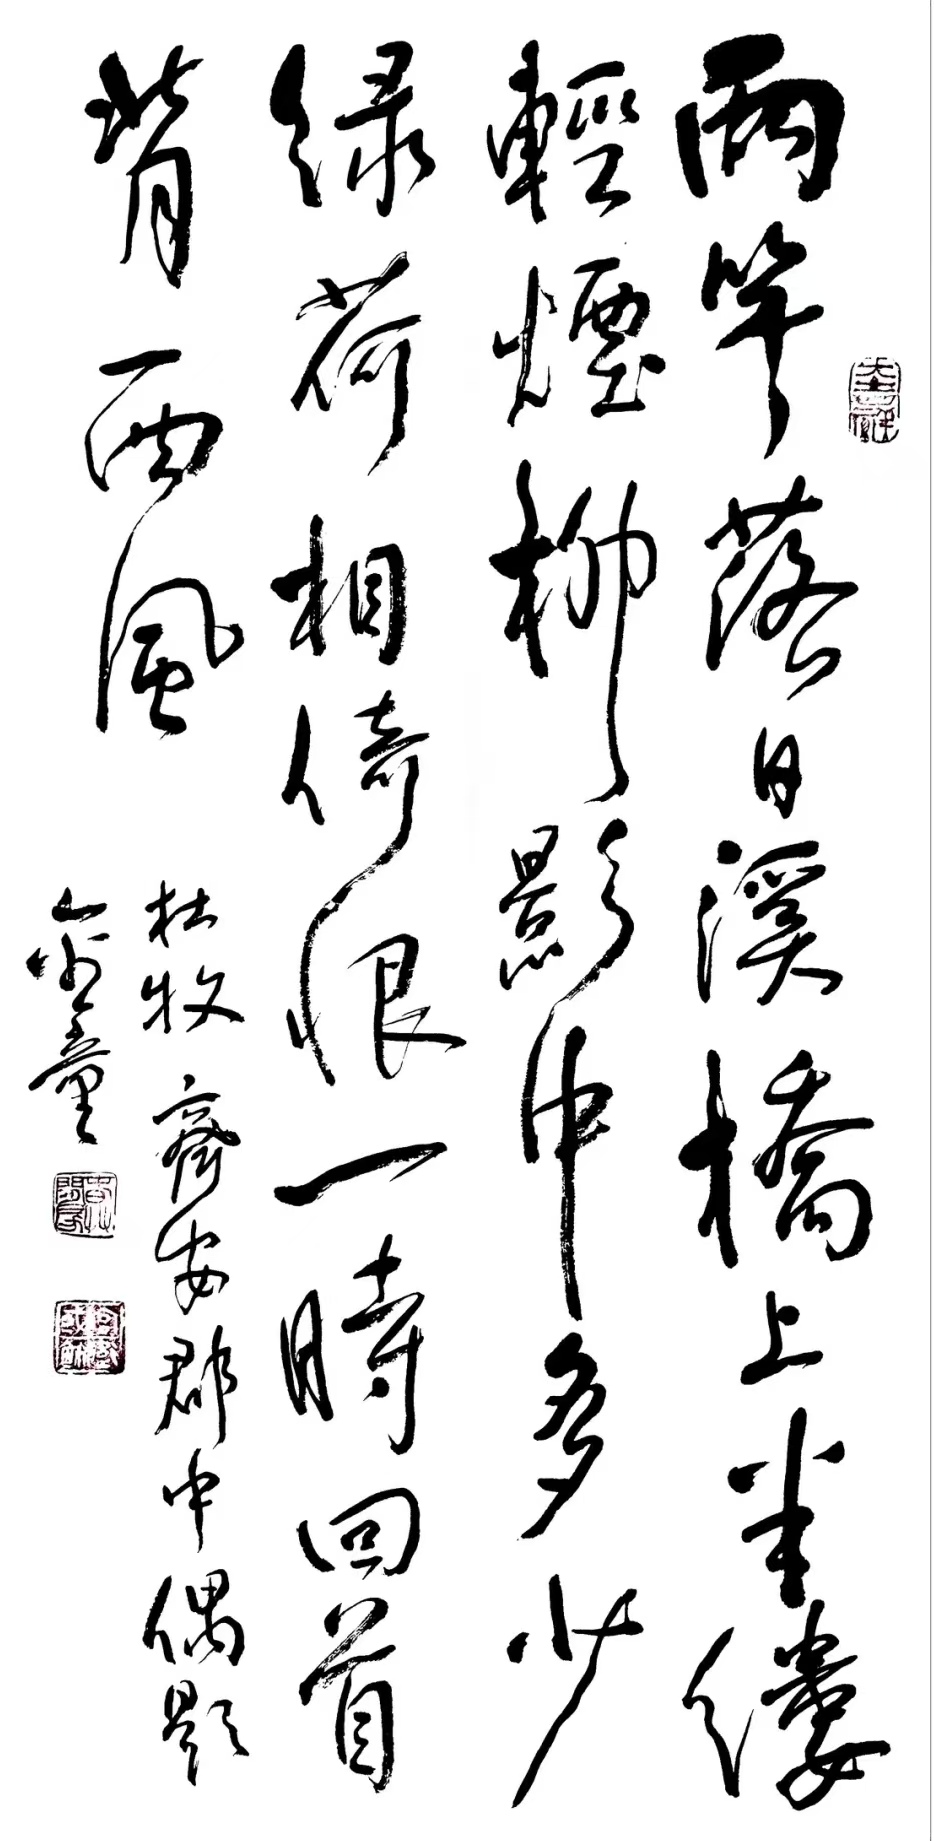 兩竿落日溪橋上半縷
輕煙柳影中多少
緑荷相倚恨一時回首
背西風
杜牧齊安郡中偶題